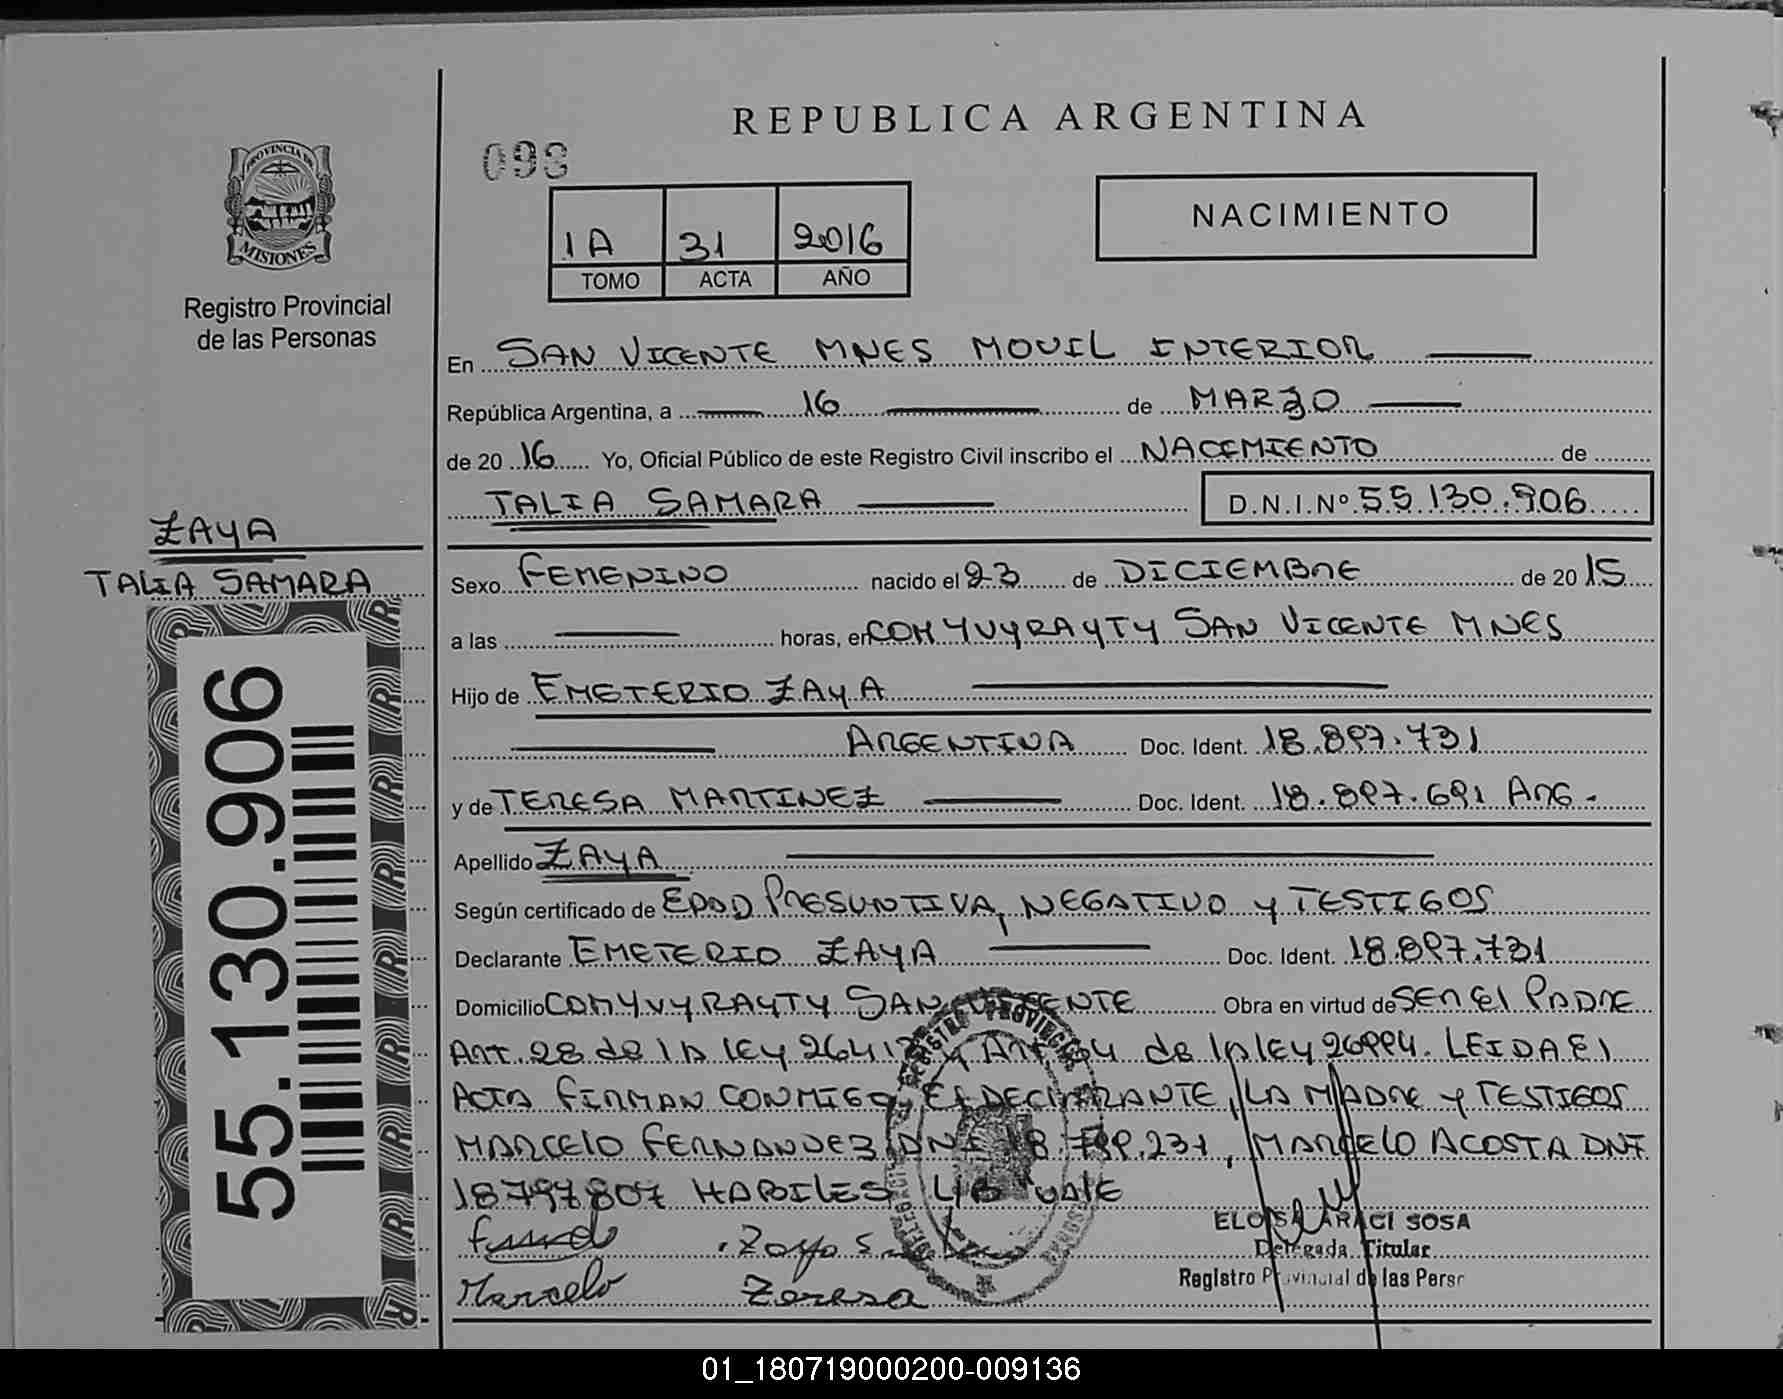 REPUBLICA ARGENTINA
093
PROVINCIA DE
MISIONES
Registro Provincial
de las Personas
1A 31 2016
TOMO ACTA AÑO
NACIMIENTO
En SAN VICENTE MNES MOVIL INTERIOR
República Argentina, a 16 de MARZO
de 2016 Yo, Oficial Público de este Registro Civil inscribo el NACIMIENTO de
TALIA SAMARA D.N.I.Nº 55.130.906
ZAYA
TALIA SAMARA
55.130.906
Sexo FEMENINO nacido el 23 de DICIEMBRE de 2015
a las horas, en COM YVYRAYTY SAN VICENTE MNES
Hijo de EMETERIO ZAYA
ARGENTINA Doc. Ident. 18.897.731
y de TERESA MARTINEZ Doc. Ident. 18.897.691 ARG.
Apellido ZAYA
Según certificado de EDAD PRESUNTIVA, NEGATIVO Y TESTIGOS
Declarante EMETERIO ZAYA Doc. Ident. 18.897.731
Domicilio COM YVYRAYTY SAN VICENTE Obra en virtud de SER El PADRE
ART. 28 de la lEY 26413 y ART 64 de la lEY 26994. LEIDA El
ACTA FIRMAN CONMIGO El DECLARANTE, LA MADRE Y TESTIGOS
MARCELO FERNANDEZ DNI 18.799.231, MARCELO ACOSTA DNI
18797807 HABILES VALE
Zaya
ELOISA ARACI SOSA
Delegada Titular
Registro Provincial de las Pers
Marcelo Teresa
01_180719000200-009136